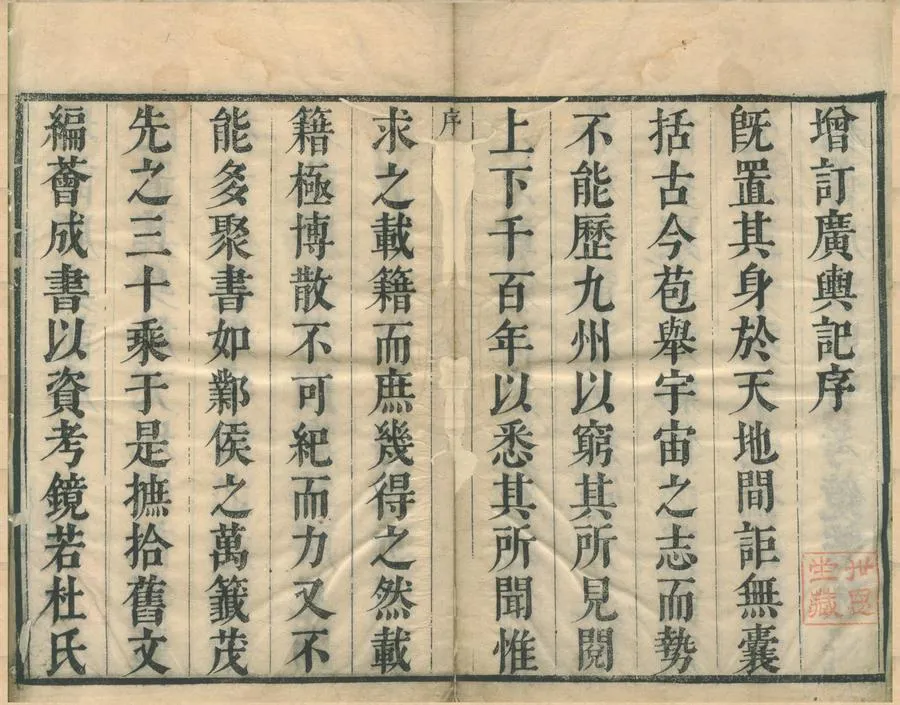 增訂廣輿記序
旣置其身於天地間詎無囊
括古今苞舉宇宙之志而勢
不能歷九州以窮其所見閱
上下千百年以悉其所聞惟
序
求之載籍而庶幾得之然載
籍極博散不可紀而力又不
能多聚書如鄴侯之萬籤茂
先之三十乘于是摭拾舊文
編薈成書以資考鏡若杜氏
堂藏